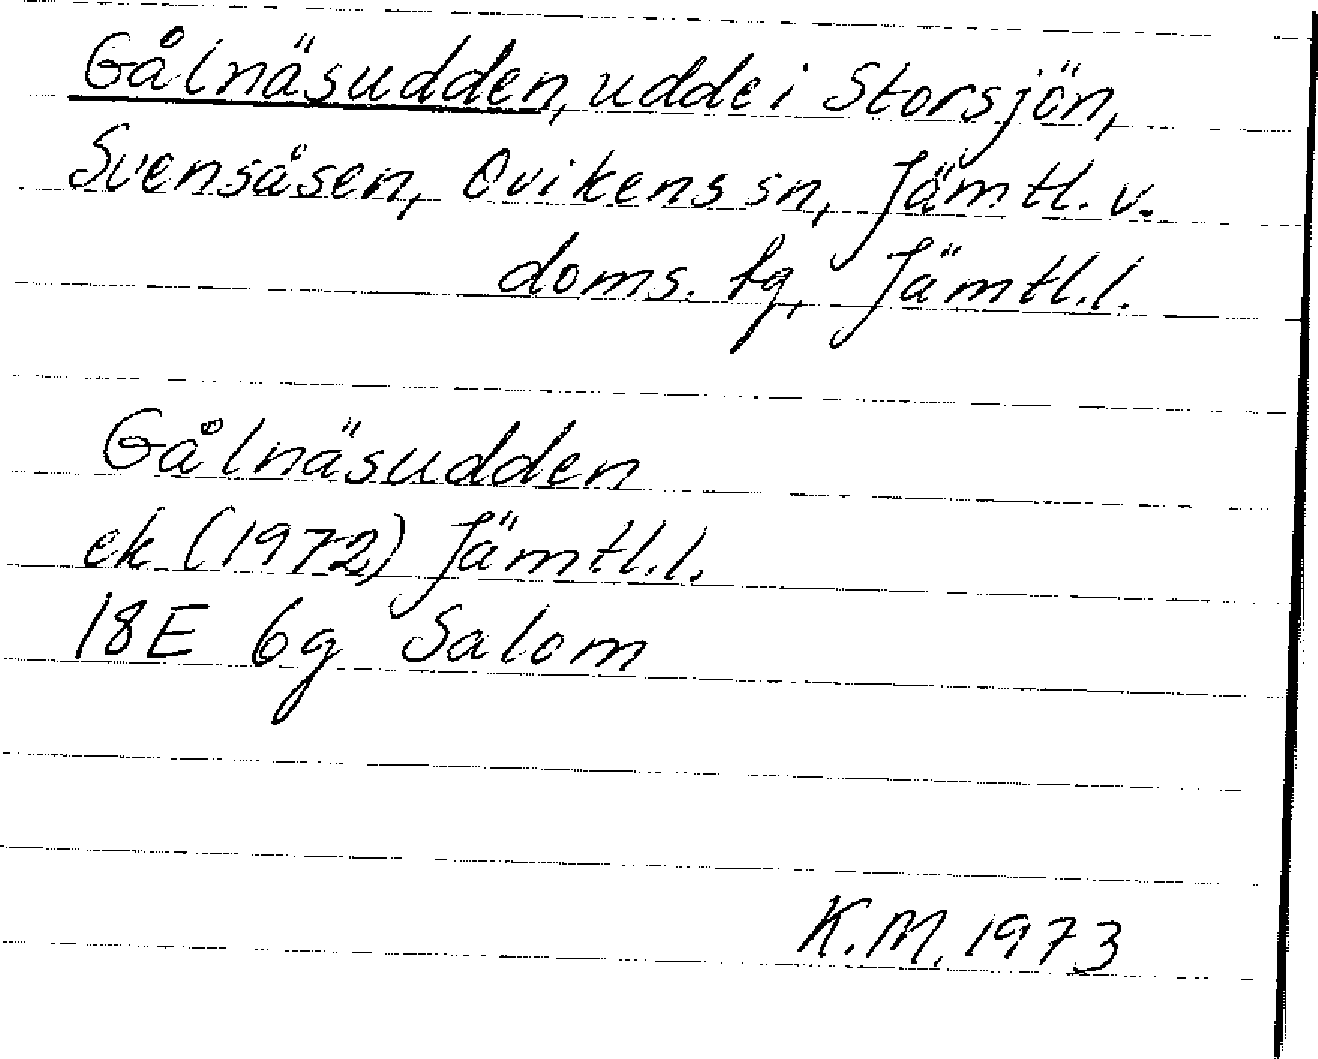 Gålnäsudden, udde i Storsjön,
Svensåsen, Ovikens sn, Jämtl. v.
doms. tg, Jämtl.l.
Gålnäsudden
ek (1972) Jämtl.l.
18E 6g Salom
K.M. 1973